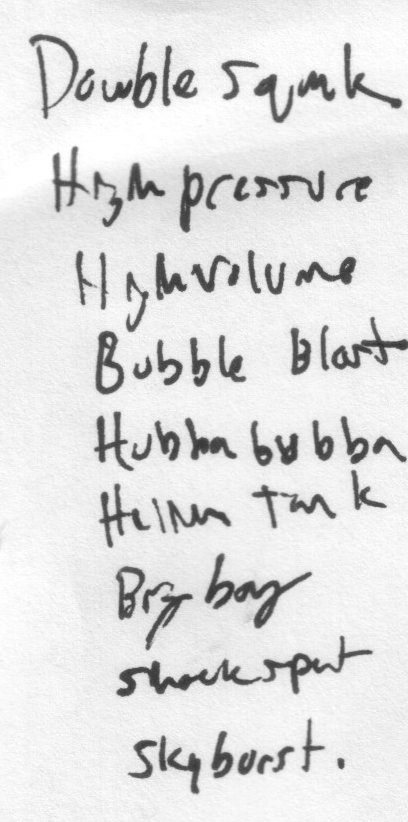 Double squnk
High pressure
High volume
Bubble blast
Hubba bubba
Helium tank
Big boy
shock spurt
skyburst.